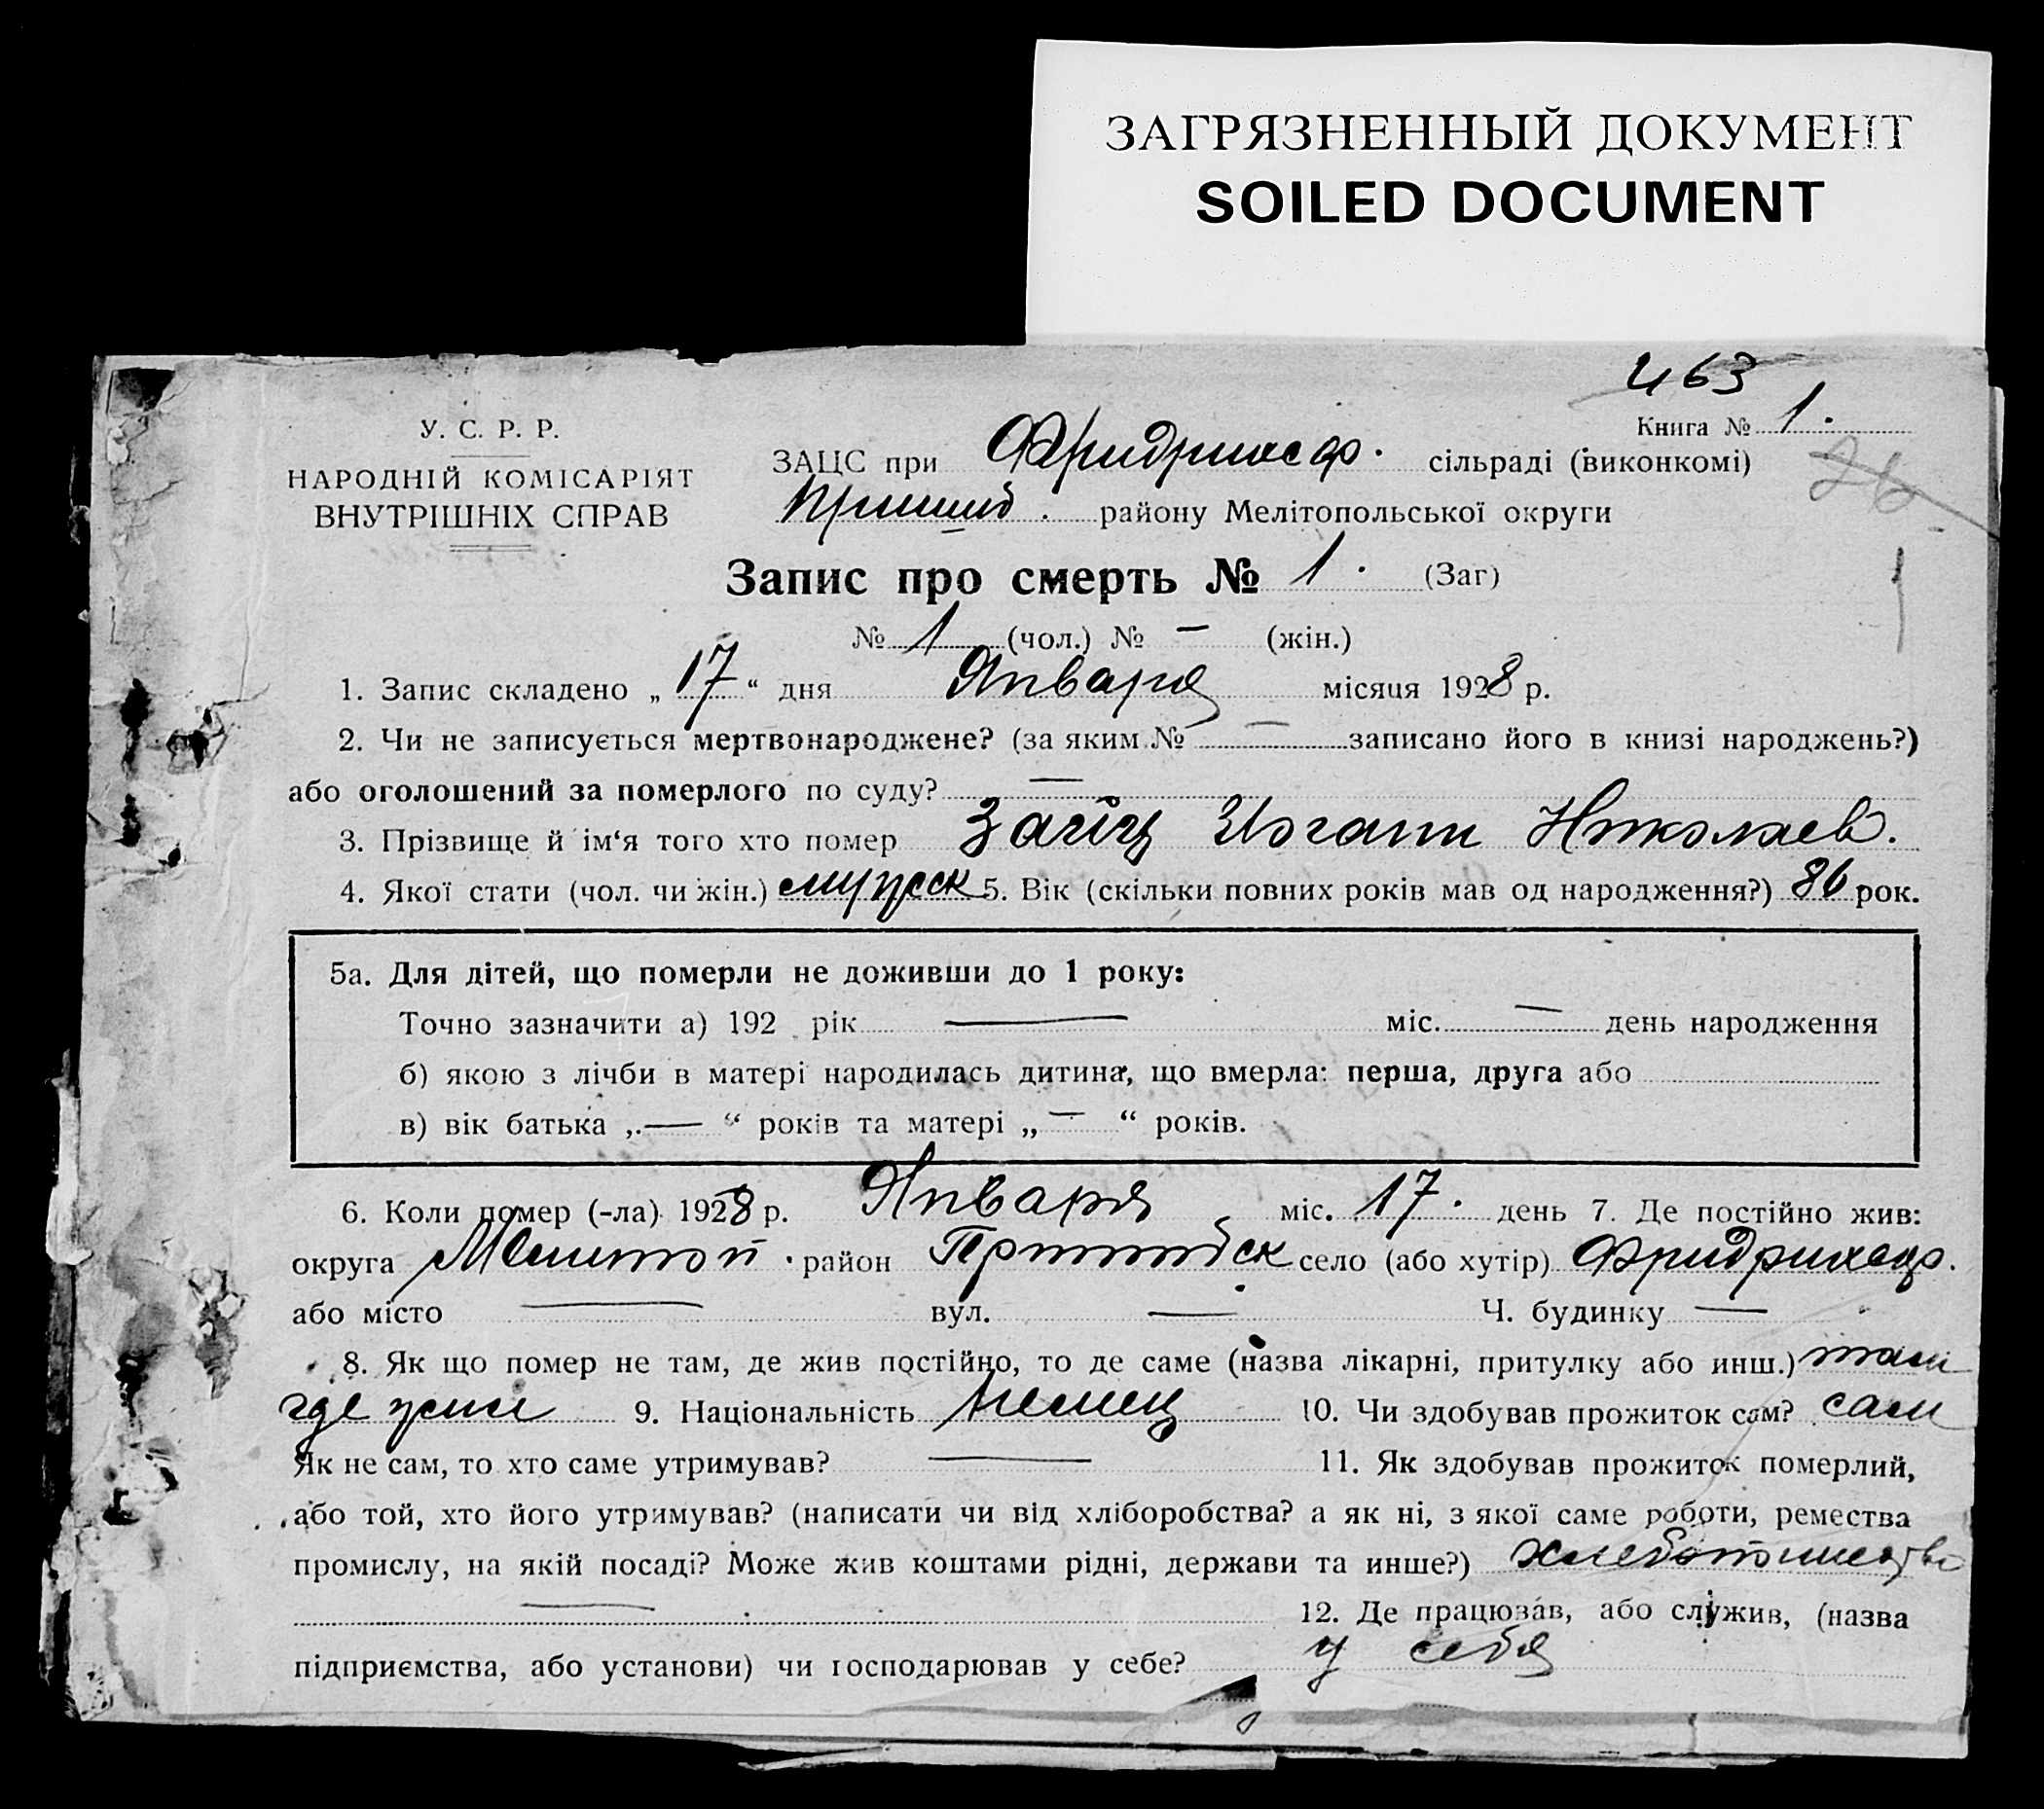 ЗАГРЯЗНЕННЫЙ ДОКУМЕНТ
SOILED DOCUMENT
463
Книга № 1.
У. С. Р. Р.
НАРОДНІЙ КОМІСАРІЯТ
ВНУТРІШНІХ СПРАВ
ЗАЦС при Фридрихсф. сільраді (виконкомі)
26
Пришиб. району Мелітопольської округи
Запис про смерть № 1. (Заг)
№ 1 (чол.) № — (жін.)
1. Запис складено „ 17 “ дня Января місяця 1928 р.
2. Чи не записується мертвонароджене? (за яким № — записано його в книзі народжень?)
або оголошений за померлого по суду? —
3. Прізвище й ім‘я того хто помер Зайц Иоганн Николаев.
4. Якої стати (чол. чи жін.) мужск 5. Вік (скільки повних років мав од народження?) 86 рок.
5а. Для дітей, що померли не доживши до 1 року:
Точно зазначити а) 192 рік — міс. — день народження
б) якою з лічби в матері народилась дитина, що вмерла: перша, друга або
в) вік батька „ — “ років та матері „ — “ років.
6. Коли помер (-ла) 1928 р. Января міс. 17. день 7. Де постійно жив:
округа Мелитоп. район Пришибск село (або хутір) Фридрихсф.
або місто — вул. — Ч. будинку —
8. Як що помер не там, де жив постійно, то де саме (назва лікарні, притулку або инш.) там
где жил 9. Національність немец 10. Чи здобував прожиток сам? сам
Як не сам, то хто саме утримував? — 11. Як здобував прожиток померлий,
або той, хто його утримував? (написати чи від хліборобства? а як ні, з якої саме роботи, ремества
промислу, на якій посаді? Може жив коштами рідні, держави та инше?) хлебопашество
— 12. Де працював, або служив, (назва
підприємства, або установи) чи господарював у себе? у себя